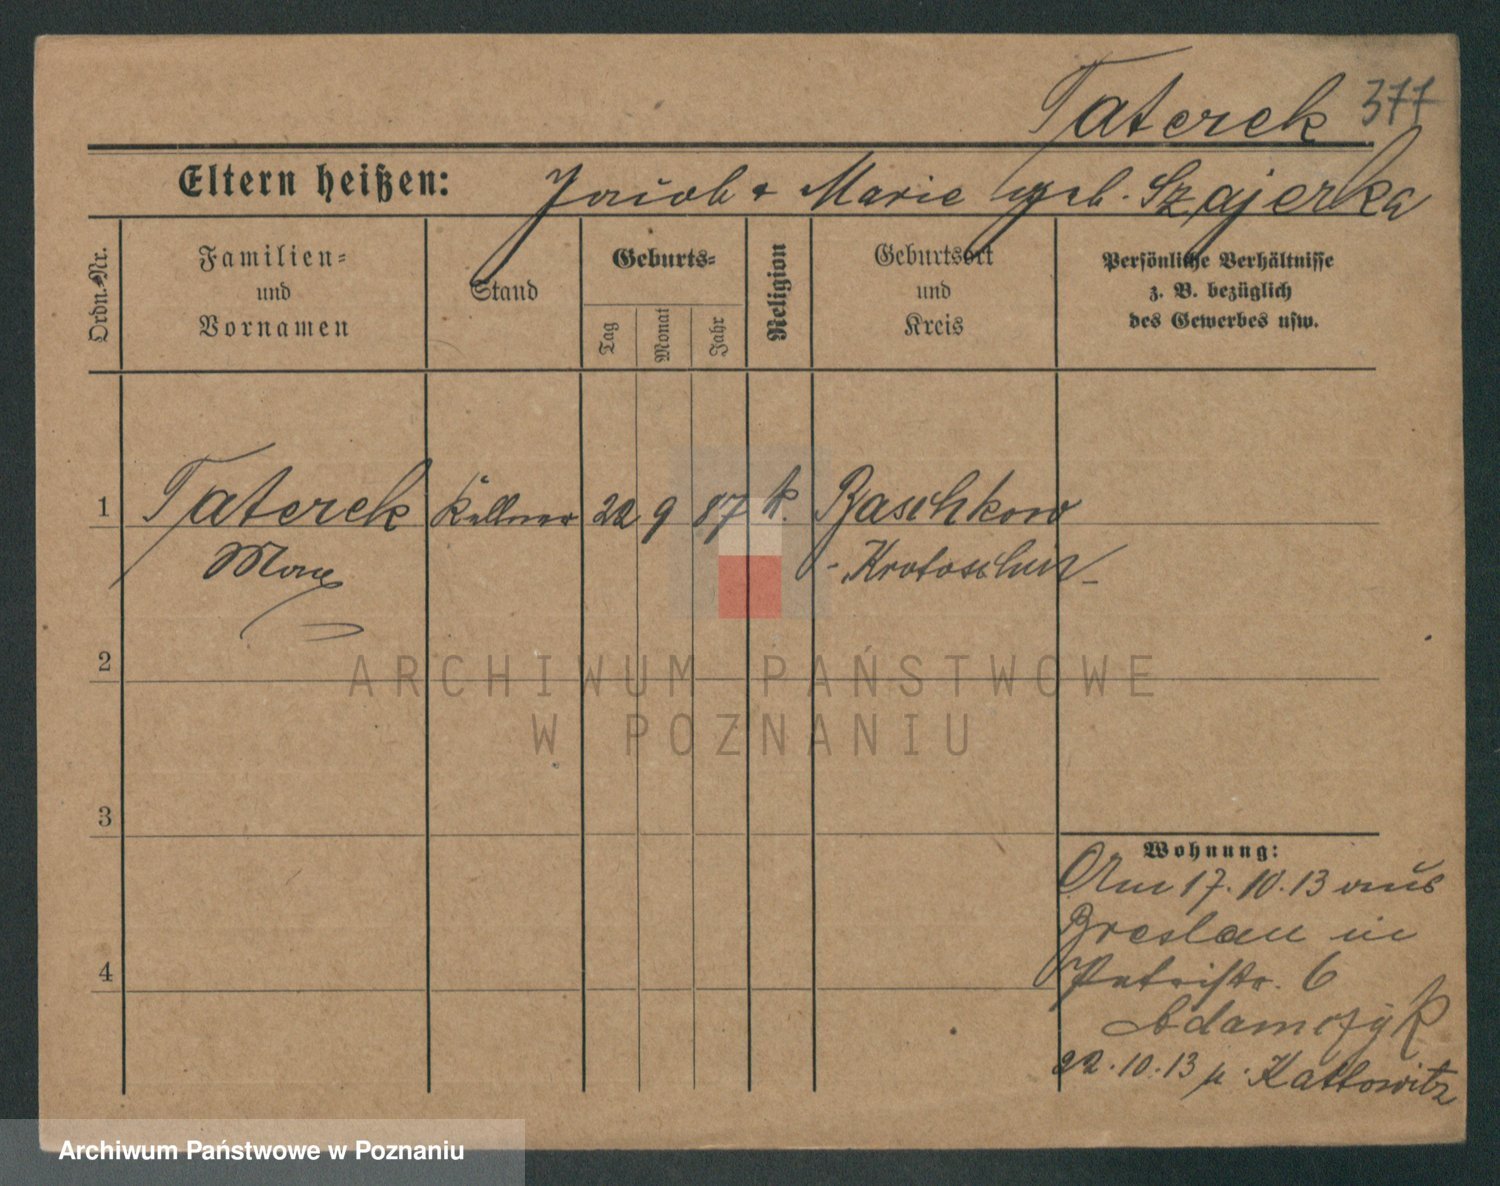 Taterek 377
Eltern heißen: Jacob + Marie geb. Szajerka
Ordn.-Nr.
Familien-
und
Vornamen
Stand
Geburts-
Tag
Monat
Jahr
Religion
Geburtsort
und
Kreis
Persönliche Verhältnisse
z. B. bezüglich
des Gewerbes usw.
1 Taterek Kellner 22 9 87 k. Baschkow
Max - Krotoschin -
2
ARCHIWUM PAŃSTWOWE
W POZNANIU
3
Wohnung:
Am 17.10.13 aus
Breslau in
4
6
Adamczyk
22.10.13 n. Kattowitz
Archiwum Państwowe w Poznaniu